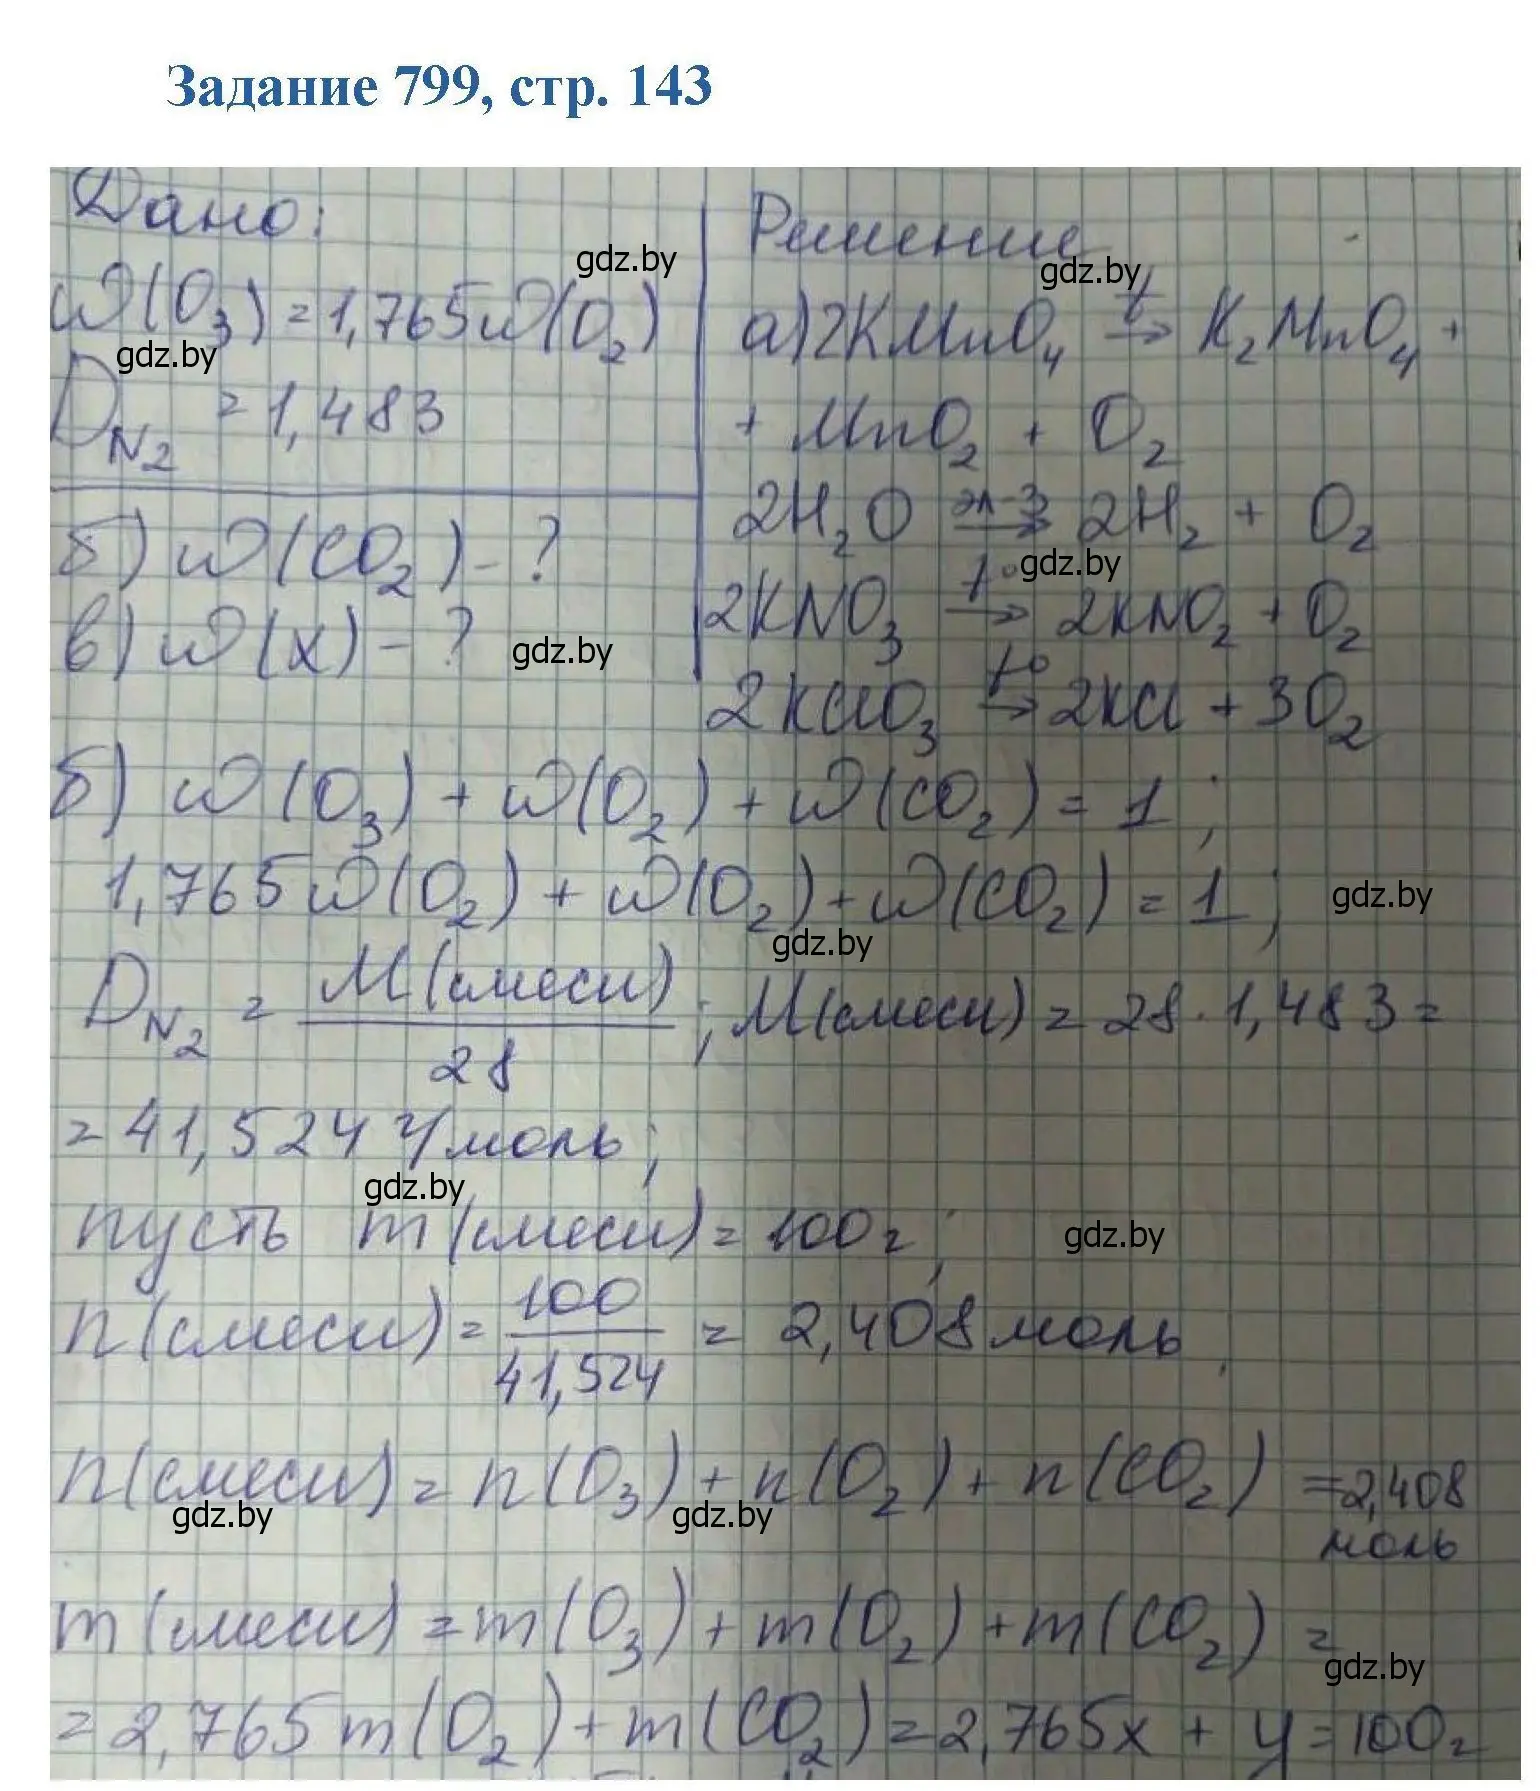 Задание 799, стр. 143
Дано:
ω(O₃) = 1,765ω(O₂)
D_N₂ = 1,483
б) ω(CO₂) - ?
в) ω(x) - ?
Решение
а) 2KMnO₄ t→ K₂MnO₄ +
+ MnO₂ + O₂
2H₂O эл-з→ 2H₂ + O₂
2KNO₃ t°→ 2KNO₂ + O₂
2KClO₃ t°→ 2KCl + 3O₂
б) ω(O₃) + ω(O₂) + ω(CO₂) = 1;
1,765ω(O₂) + ω(O₂) + ω(CO₂) = 1;
D_N₂ = M(смеси)/28; M(смеси) = 28 · 1,483 =
= 41,524 г/моль;
пусть m(смеси) = 100г;
n(смеси) = 100/41,524 = 2,408 моль,
n(смеси) = n(O₃) + n(O₂) + n(CO₂) = 2,408
моль
m(смеси) = m(O₃) + m(O₂) + m(CO₂) =
= 2,765m(O₂) + m(CO₂) = 2,765x + y = 100г
gdz.by
gdz.by
gdz.by
gdz.by
gdz.by
gdz.by
gdz.by
gdz.by
gdz.by
gdz.by
gdz.by
gdz.by